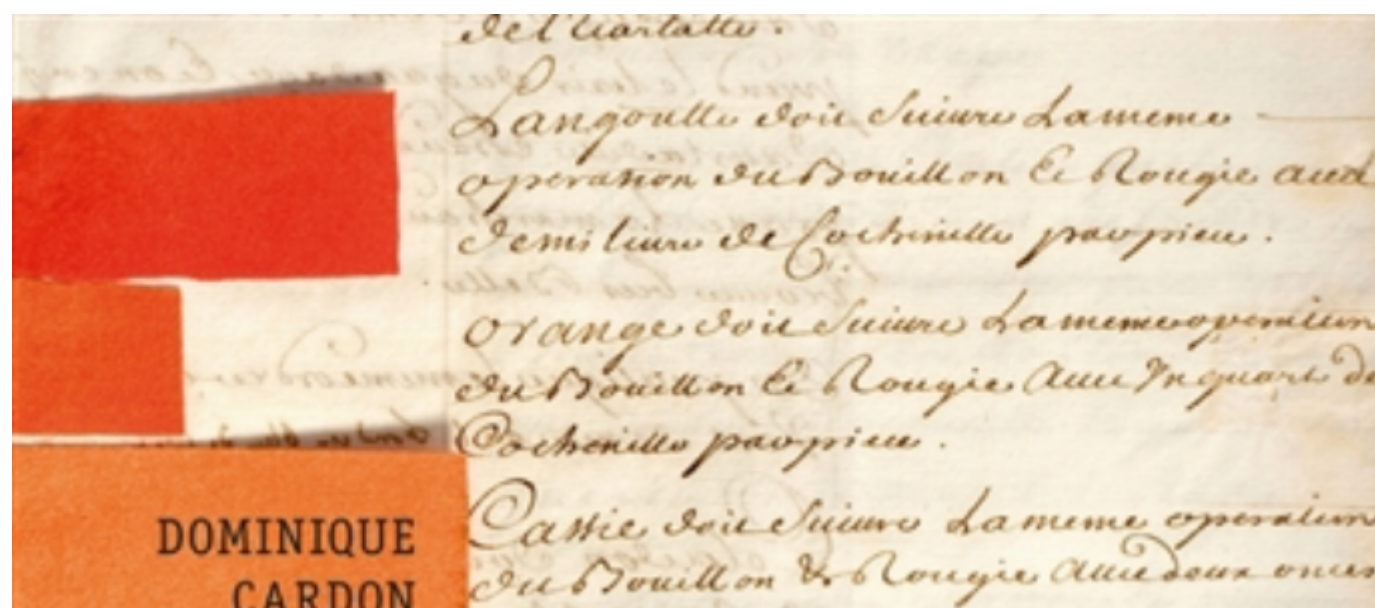 de l'Ecarlatte.
Langoutte doit suivre La meme
operation du Bouillon & Rougie avec
demi livre de Cochenille par piece.
orange doit suivre La meme operation
du Bouillon & Rougie avec Un quart de
Cochenille par piece.
Cassie doit suivre La meme operation
du Bouillon & Rougie avec deux onces
DOMINIQUE
CARDON